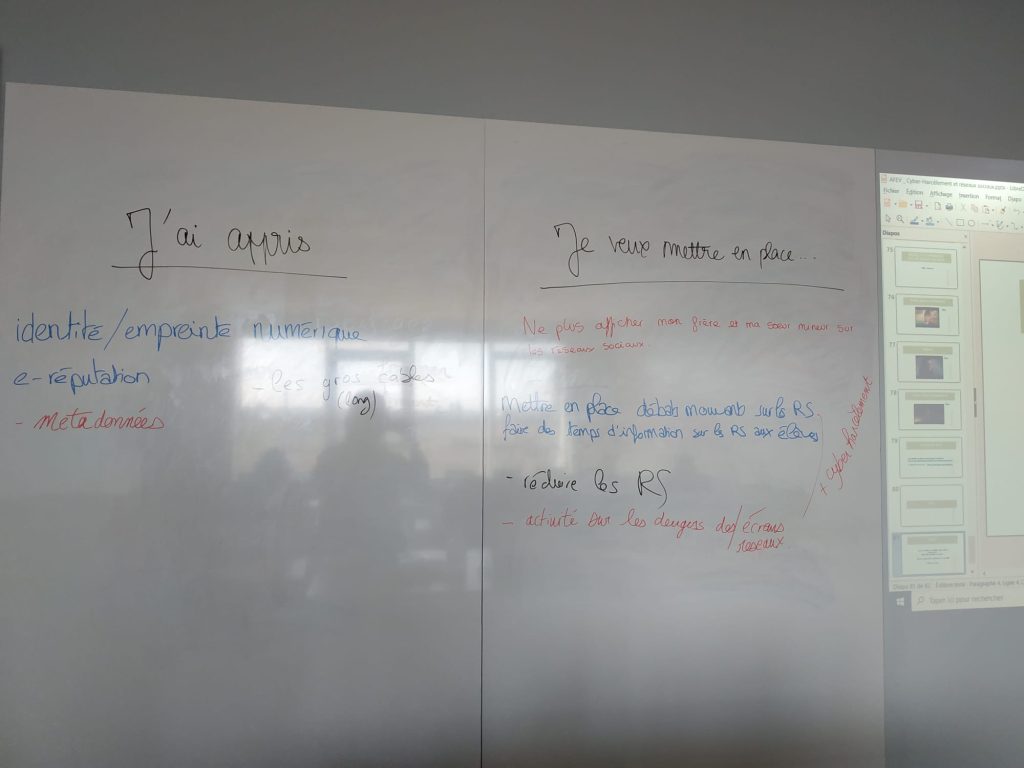 J'ai appris
identité/empreinte numérique
e-réputation
- Meta données
- les gros câbles
(long)
Je veux mettre en place...
Ne plus afficher mon frère et ma soeur mineur sur
les réseaux sociaux.
Mettre en place débats mouvants sur les RS
faire des temps d'information sur les RS aux élèves
+ cyber harcèlement
- réduire les RS
- activité sur les dangers des/écrans
réseaux.
AFEV _ Cyber-Harcèlement et réseaux sociaux.pptx - LibreO
Fichier Édition Affichage Insertion Format Diapo
Diapos
75
76
77
78
79
80
Taper ici pour rechercher